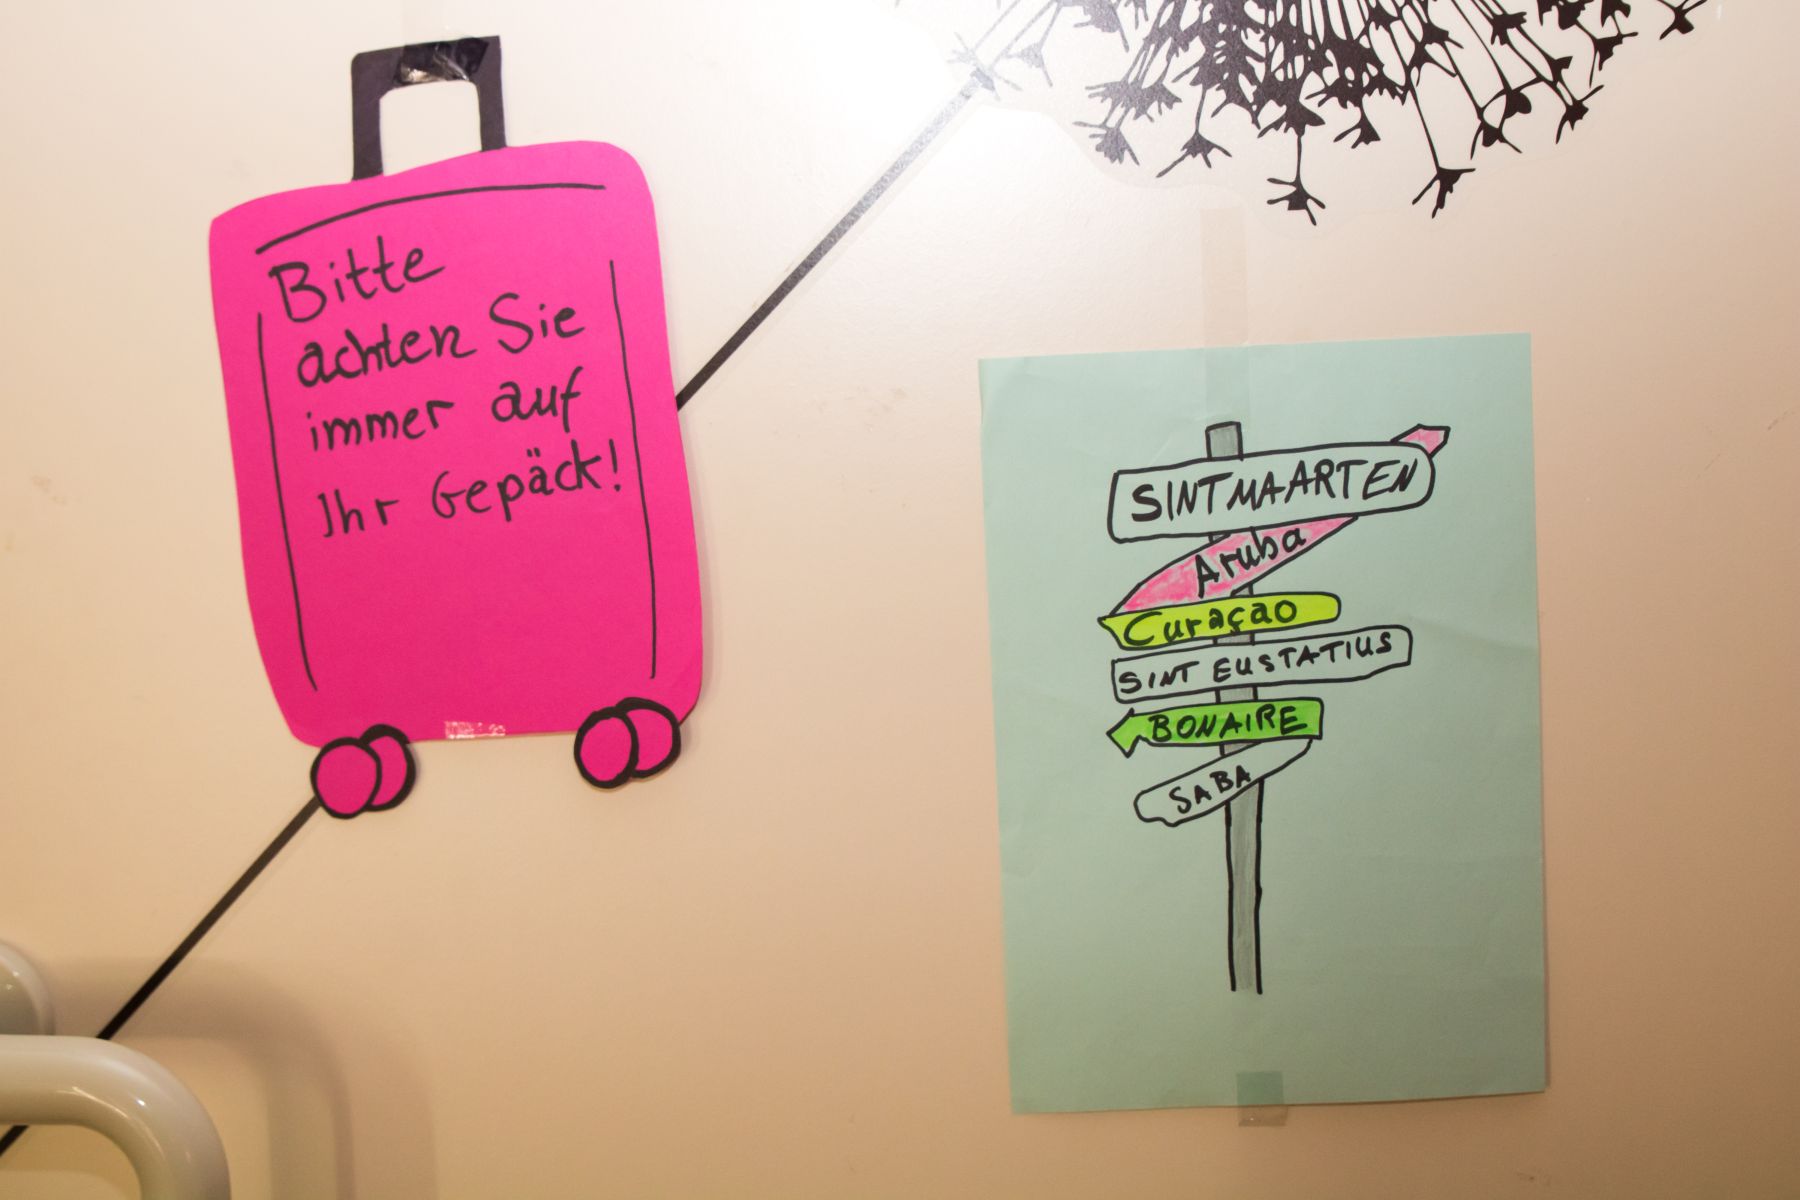 Bitte
achten Sie
immer auf
Ihr Gepäck!
SINT MAARTEN
Aruba
Curaçao
SINT EUSTATIUS
BONAIRE
SABA